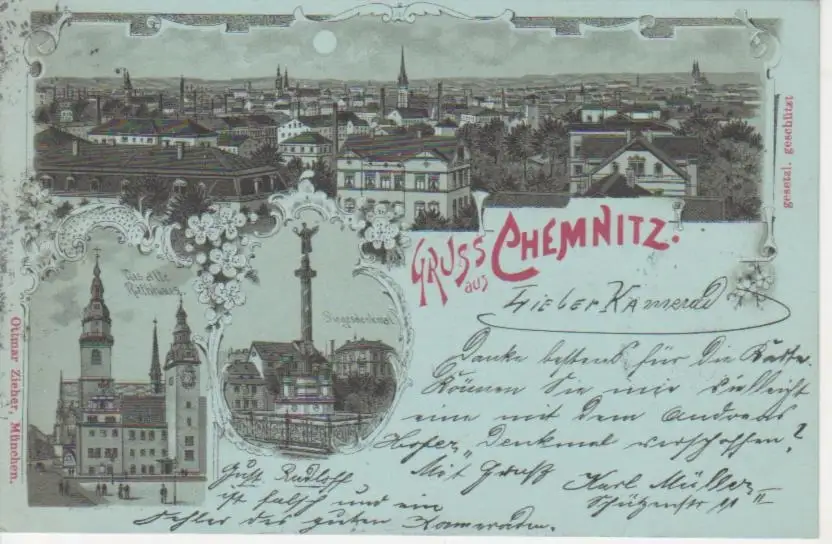 gesetzl. geschützt
GRUSS aus CHEMNITZ.
Das alte
Rathhaus.
Siegesdenkmal
Ottmar Zieher, München.
Lieber Kamerad
Danke bestens für Die Karte.
Können Sie mir vielleicht
eine mit dem Andreas
Hofer „Denkmal verschaffen?
Mit Gruß Karl Müller
Schützenstr 11 II
Gust. Rudloff
ist falsch und ein
Fehler des guten Kameraden.